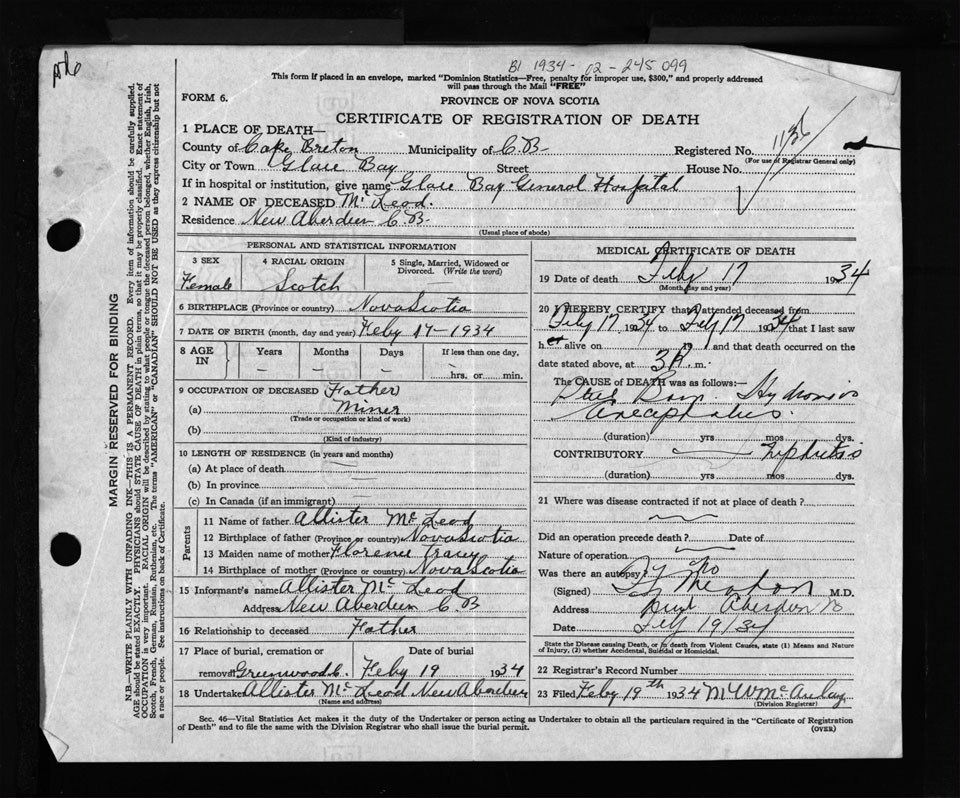 B1 1934-02-245099
This form if placed in an envelope, marked "Dominion Statistics—Free, penalty for improper use, $300," and properly addressed
will pass through the Mail "FREE"
FORM 6.
PROVINCE OF NOVA SCOTIA
CERTIFICATE OF REGISTRATION OF DEATH
1136
1 PLACE OF DEATH—
County of Cape Breton Municipality of C.B- Registered No.
(For use of Registrar General only)
City or Town Glace Bay Street House No.
If in hospital or institution, give name Glace Bay General Hospital
2 NAME OF DECEASED Mc Leod.
Residence New Aberdeen C.B-
(Usual place of abode)
PERSONAL AND STATISTICAL INFORMATION
3 SEX 4 RACIAL ORIGIN 5 Single, Married, Widowed or
Divorced. (Write the word)
Female Scotch
6 BIRTHPLACE (Province or country) Nova Scotia
7 DATE OF BIRTH (month, day and year) Feby 17-1934
8 AGE IN Years Months Days If less than one day,
hrs. or min.
9 OCCUPATION OF DECEASED Father
(a) Miner
(Trade or occupation or kind of work)
(b)
(Kind of industry)
10 LENGTH OF RESIDENCE (in years and months)
(a) At place of death
(b) In province
(c) In Canada (if an immigrant)
Parents
11 Name of father Allister Mc Leod
12 Birthplace of father (Province or country) Nova Scotia
13 Maiden name of mother Florence Tracey
14 Birthplace of mother (Province or country) Nova Scotia
15 Informant's name Allister Mc Leod
Address New Aberdeen C.B
16 Relationship to deceased Father
17 Place of burial, cremation or Date of burial
removal Greenwood C. Feby 19 1934
18 Undertaker Allister Mc Leod New Aberdeen
(Name and address)
MEDICAL CERTIFICATE OF DEATH
19 Date of death Feby 17 1934
(Month, day and year)
20 I HEREBY CERTIFY that I attended deceased from
Feby 17 1934 to Feby 17 1934 that I last saw
h alive on and that death occurred on the
date stated above, at 3 m.
The CAUSE OF DEATH was as follows:—
Still Born. Hydronios
Anecephalus.
(duration) yrs mos dys.
CONTRIBUTORY Nephritis
(duration) yrs mos dys.
21 Where was disease contracted if not at place of death?
Did an operation precede death? Date of
Nature of operation
Was there an autopsy? No
(Signed) M.D.
Address New Aberdeen
Date Feb 19/34
State the Disease causing Death, or in death from Violent Causes, state (1) Means and Nature
of Injury, (2) whether Accidental, Suicidal or Homicidal.
22 Registrar's Record Number
23 Filed Feby 19th 1934 M W McAulay
(Division Registrar)
Sec. 46—Vital Statistics Act makes it the duty of the Undertaker or person acting as Undertaker to obtain all the particulars required in the "Certificate of Registration
of Death" and to file the same with the Division Registrar who shall issue the burial permit.
(OVER)
MARGIN RESERVED FOR BINDING
N.B.—WRITE PLAINLY WITH UNFADING INK—THIS IS A PERMANENT RECORD. Every item of information should be carefully supplied.
AGE should be stated EXACTLY. PHYSICIANS should STATE CAUSE OF DEATH in plain terms, so that it may be properly classified. Exact statement of
OCCUPATION is very important. RACIAL ORIGIN will be described by stating to what people or tongue the deceased person belonged, whether English, Irish,
Scotch, French, German, Russian, Ruthenian, etc. The terms "AMERICAN" or "CANADIAN" SHOULD NOT BE USED as they express citizenship but not
a race or people. See instructions on back of Certificate.